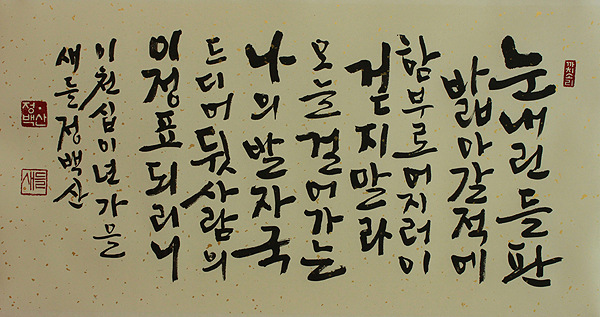 눈내린들판
밟아갈적에
함부로어지러이
걷지말라
오늘걸어가는
나의발자국
드디어뒷사람의
이정표되리니
이천십이년가을
새들정백산
정백산
새들